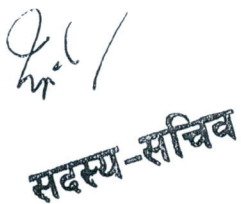 सदस्य-सचिव